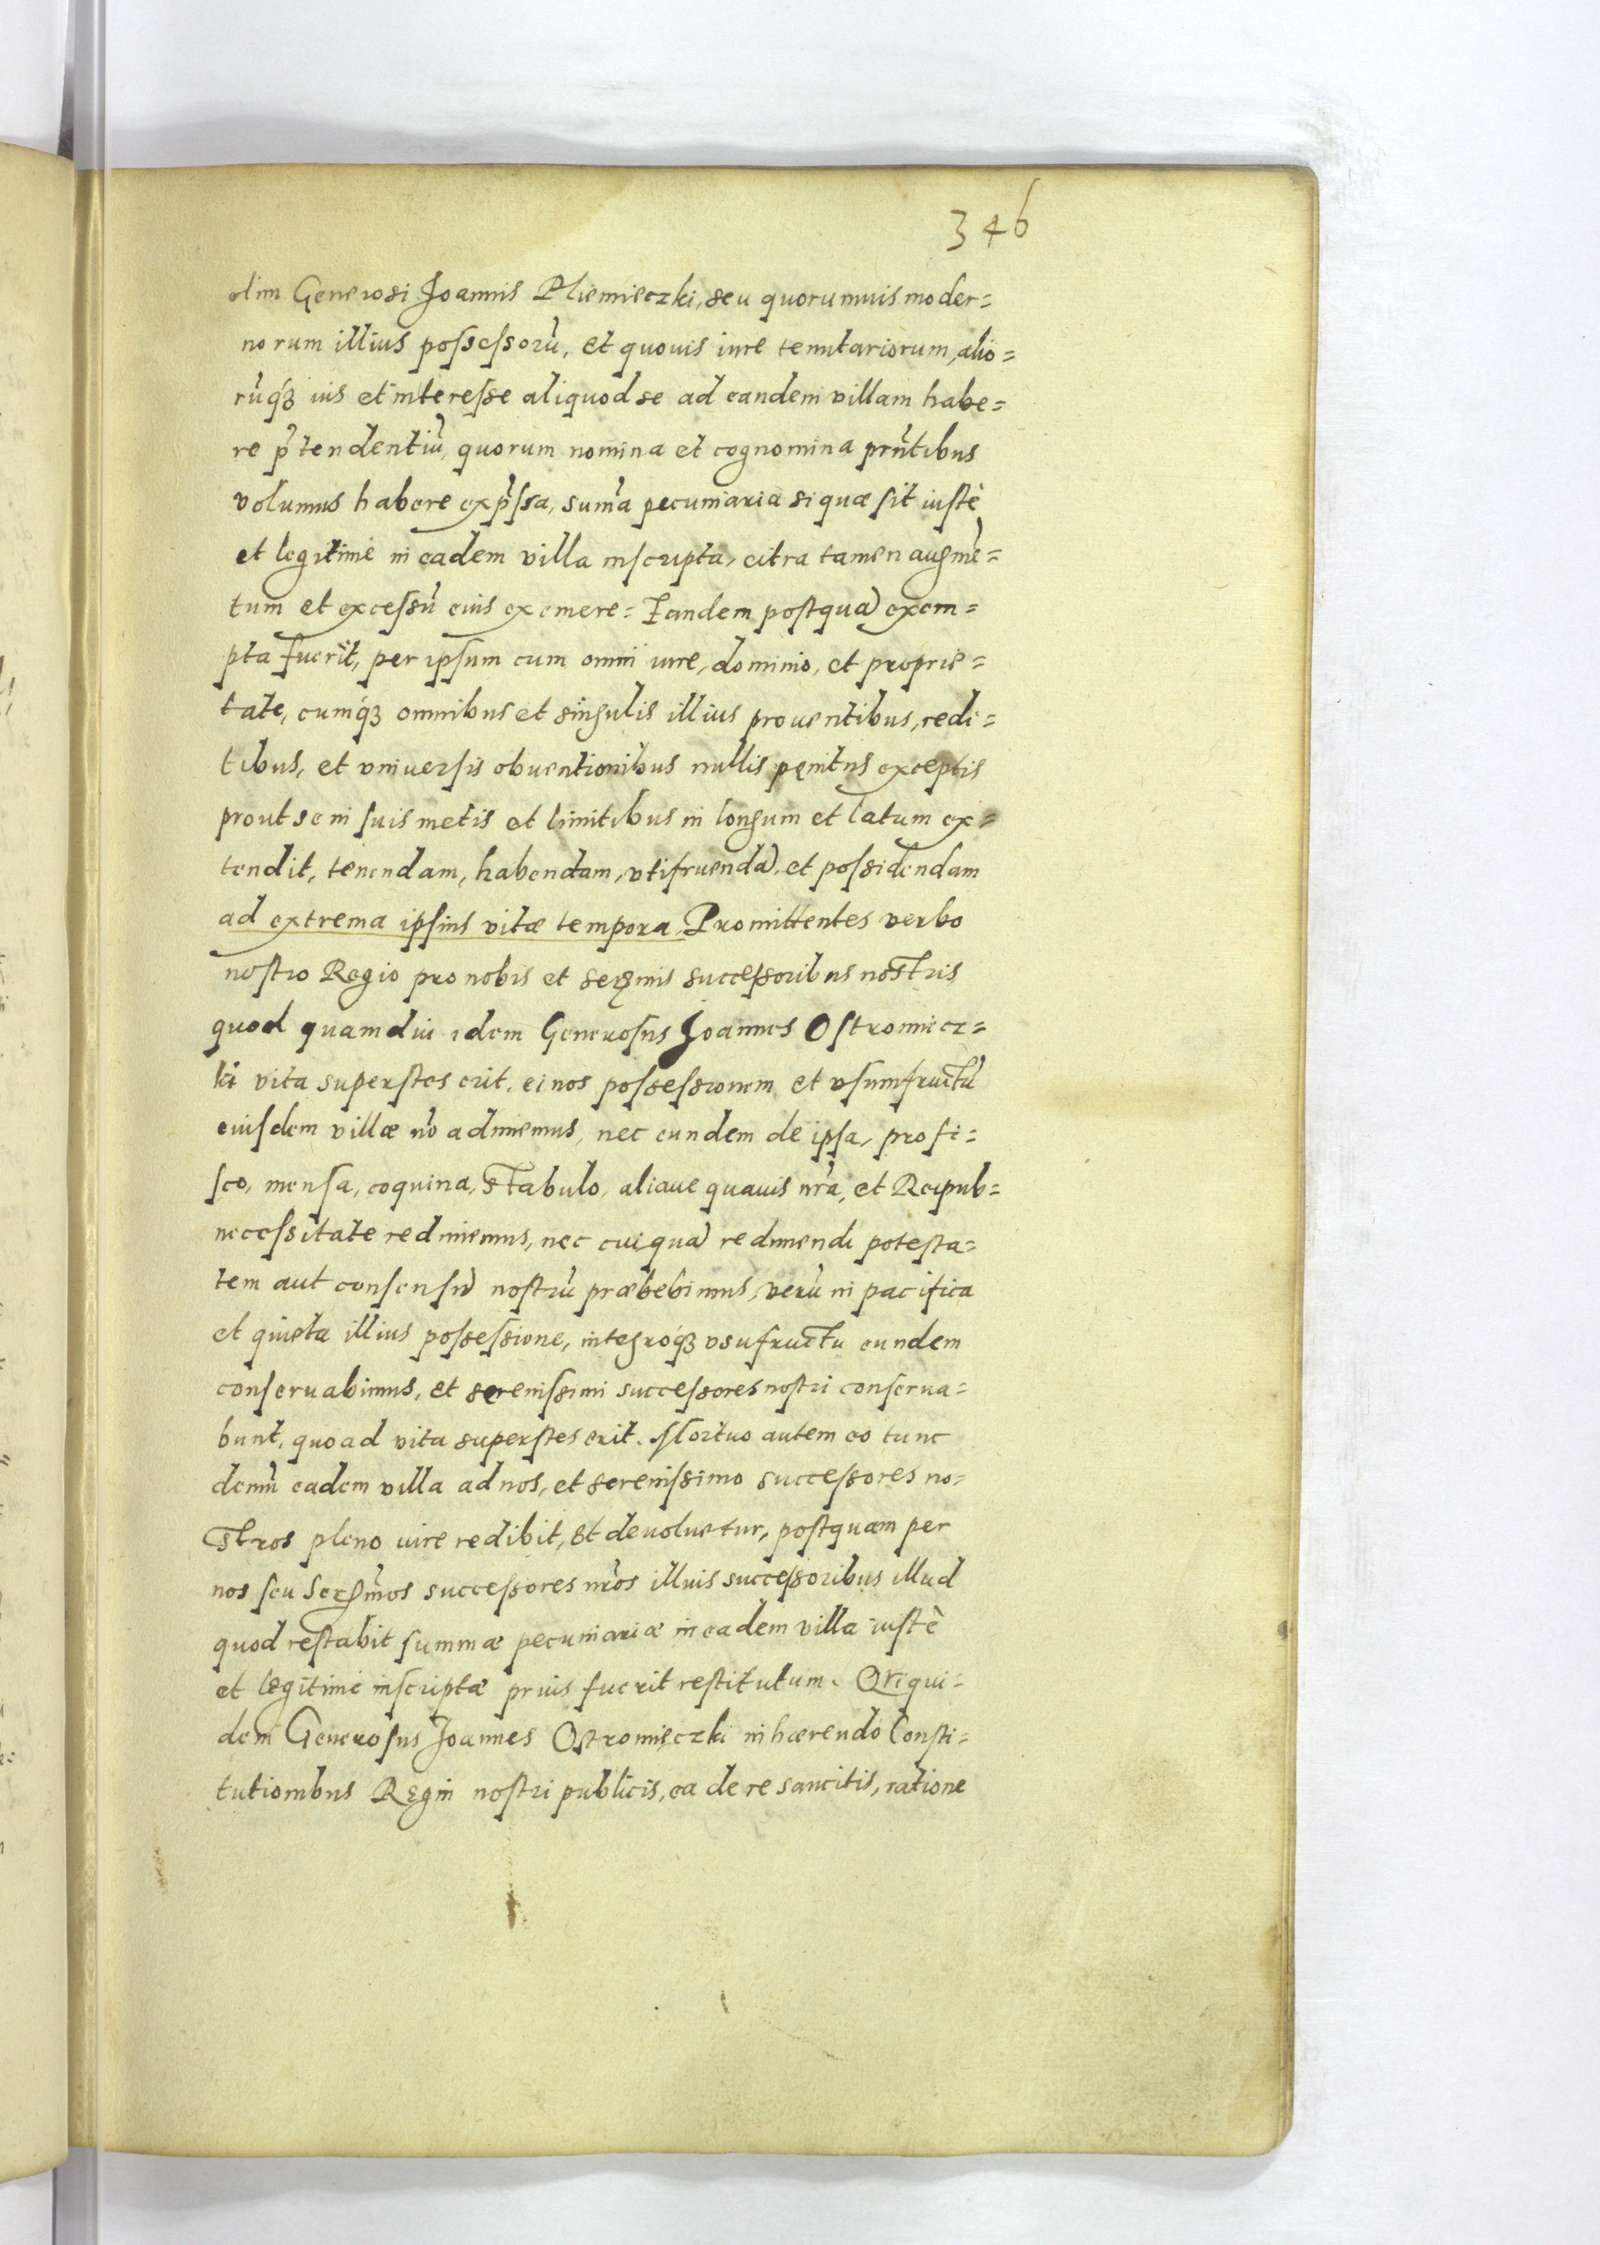 346
olim Generosi Joannis Pliemieczki, seu quorumuis moder=
norum illius possessorũ, et quouis iure tenutariorum, alio=
rũq́ꝫ ius et interesse aliquod se ad eandem villam habe=
re p̃tendentiũ, quorum nomina et cognomina prñtibus
volumus habere exp̃ssa, sum̃a pecuniaria siquæ sit iustè
et legitimè in eadem villa inscripta, citra tamen augmẽ=
tum et excessũ eius exemere= Tandem postquã exem=
pta fuerit, per ipsum cum omni iure, dominio, et proprie=
tate, cumq́ꝫ omnibus et singulis illius prouentibus, redi=
tibus, et vniuersis obuentionibus nullis pęnitus exceptis
prout se in suis metis et limitibus in longum et latum ex=
tendit, tenendam, habendam, vtifruendã, et possidendam
ad extrema ipsius vitæ tempora. Promittentes verbo
nostro Regio pro nobis et serẽmis successoribus nostris
quod quamdiu idem Generosus Joannes Ostromiecz=
ki vita superstes erit, ei nos possessionem et vsumfructũ
eiusdem villæ nõ adimemus, nec eundem de ipsa, pro fi=
sco, mensa, coquina, stabulo, aliaue quauis nr̃a, et Reipub=
necessitate redimemus, nec cuiquã redimendi potesta=
tem aut consensũ nostrũ præbebimus, verũ in pacifica
et quieta illius possessione, integroq́ꝫ vsufructu eundem
conseruabimus, et serenissimi successores nostri conserua=
bunt, quoad vita superstes erit. Mortuo autem eo tunc
demũ eadem villa ad nos, et serenissimo successores no=
stros pleno iure redibit, et deuoluetur, postquam per
nos seu Serẽm̃os successores nr̃os illius successoribus illud
quod restabit summæ pecuniariæ in eadem villa iustè
et legitimè inscriptæ prius fuerit restitutum. Qui qui=
dem Generosus Joannes Ostromięczki inhærendo Consti=
tutionibus Regni nostri publicis, ea de re sancitis, ratione